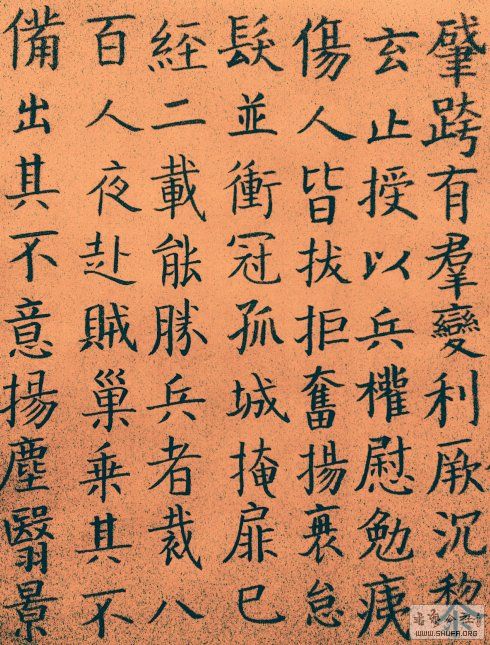 肇跨有羣變利厥沉
玄止授以兵權慰勉痍
傷人皆拔拒奮揚衰怠
髮並衝冠孤城掩扉已
經二載能勝兵者裁八
百人夜赴賊巢乘其不
備出其不意揚塵翳景
WWW.SHUFA.ORG